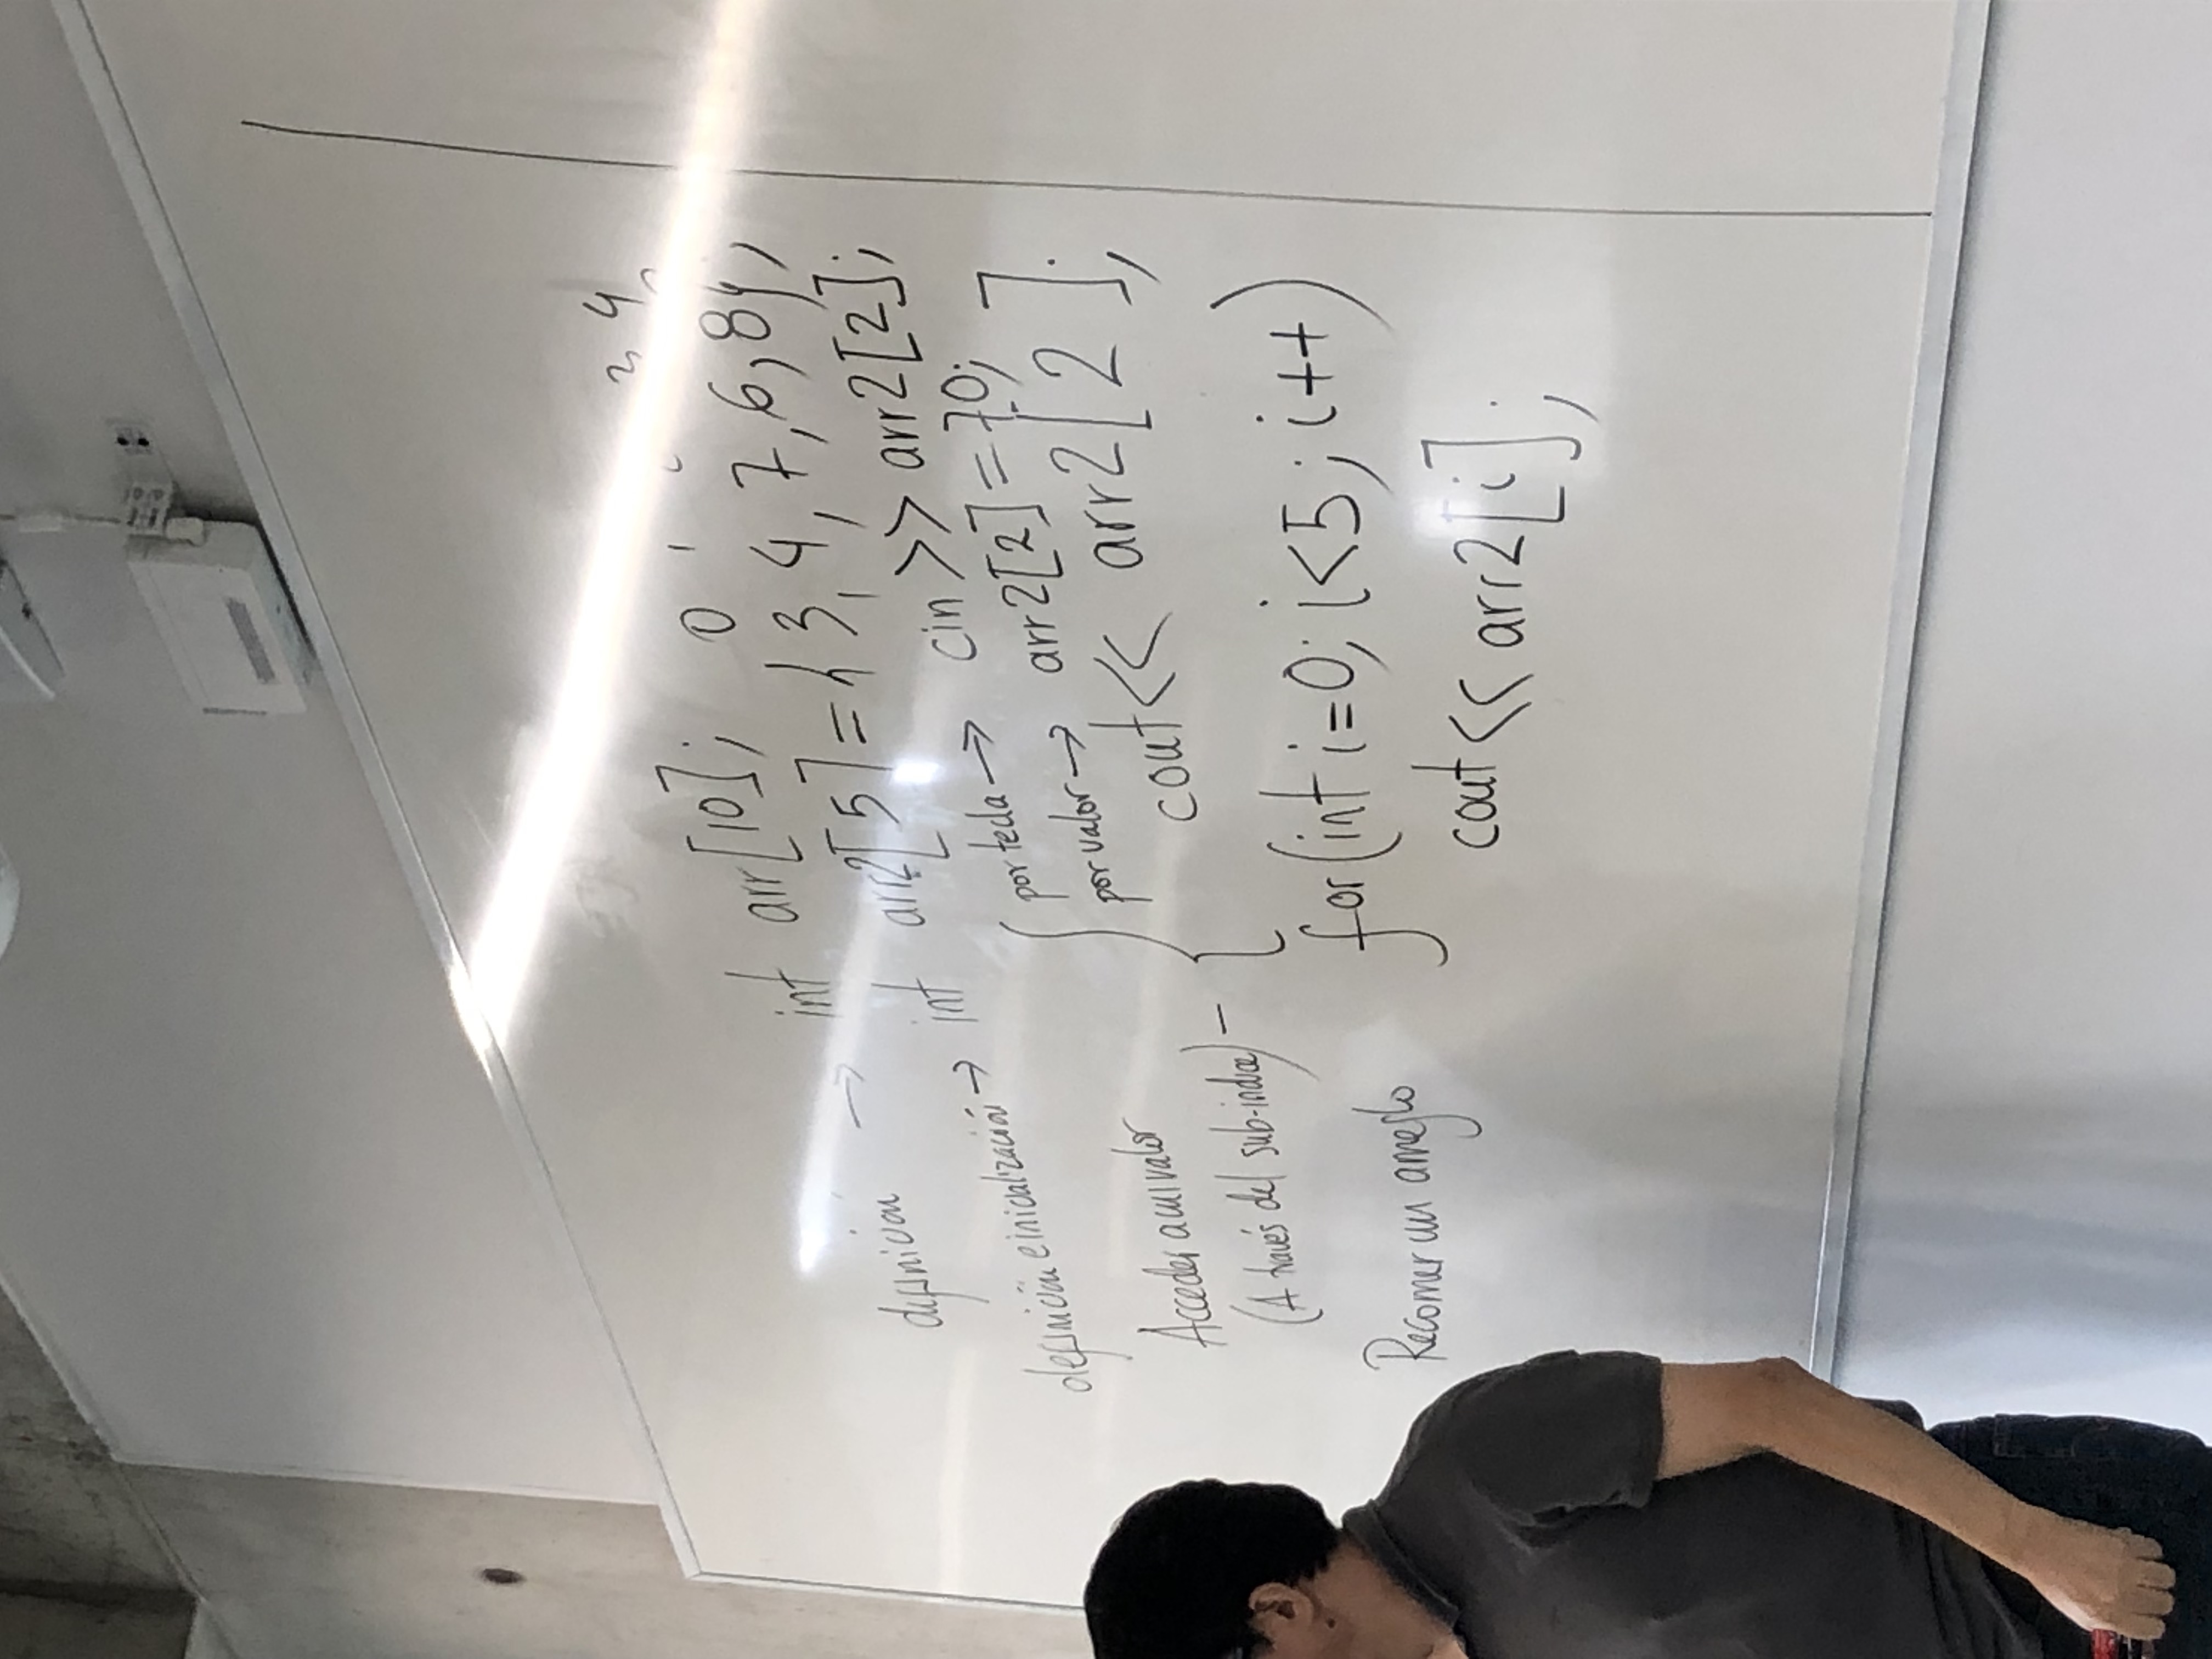 0 1 2 3 4
definición → int arr[10];
definición e inicialización → int arr2[5]={3, 4, 7, 6, 8};
Acceder a un valor
(A través del sub-indice) –
por tecla → cin >> arr2[2];
por valor → arr2[2]=70;
cout<< arr2[2];
Recorrer un arreglo
for(int i=0; i<5; i++)
cout<< arr2[i];